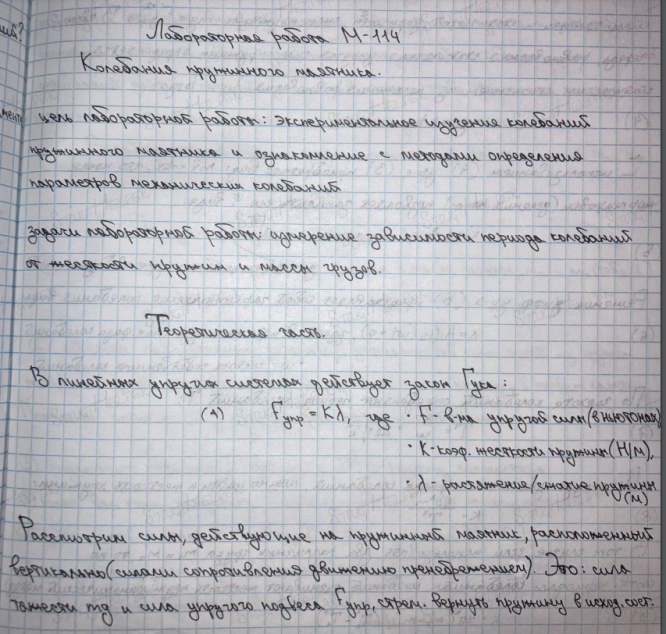 Лабораторная работа М-114
Колебания пружинного маятника.
цель лабораторной работы: экспериментальное изучение колебаний
пружинного маятника и ознакомление с методами определения
параметров механических колебаний
задачи лабораторной работы: измерение зависимости периода колебаний
от жесткости пружин и массы грузов.
Теоретическая часть.
В линейных упругих системах действует закон Гука:
(1) Fупр = Kλ, где · F - в-на упругой силы (в ньютонах)
· K - коэф. жесткости пружины (Н/м),
· λ - растяжение/сжатие пружины
(м)
Рассмотрим силы, действующие на пружинный маятник, расположенный
вертикально (силами сопротивления движению пренебрежем). Это: сила
тяжести mg и сила упругого подвеса Fупр, стрем. вернуть пружину в исход. сост.